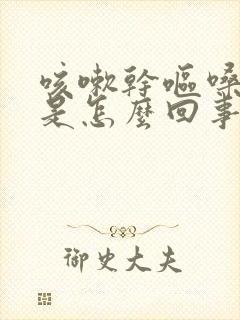 咳嗽幹嘔嗓
是怎麼回事
御史大夫